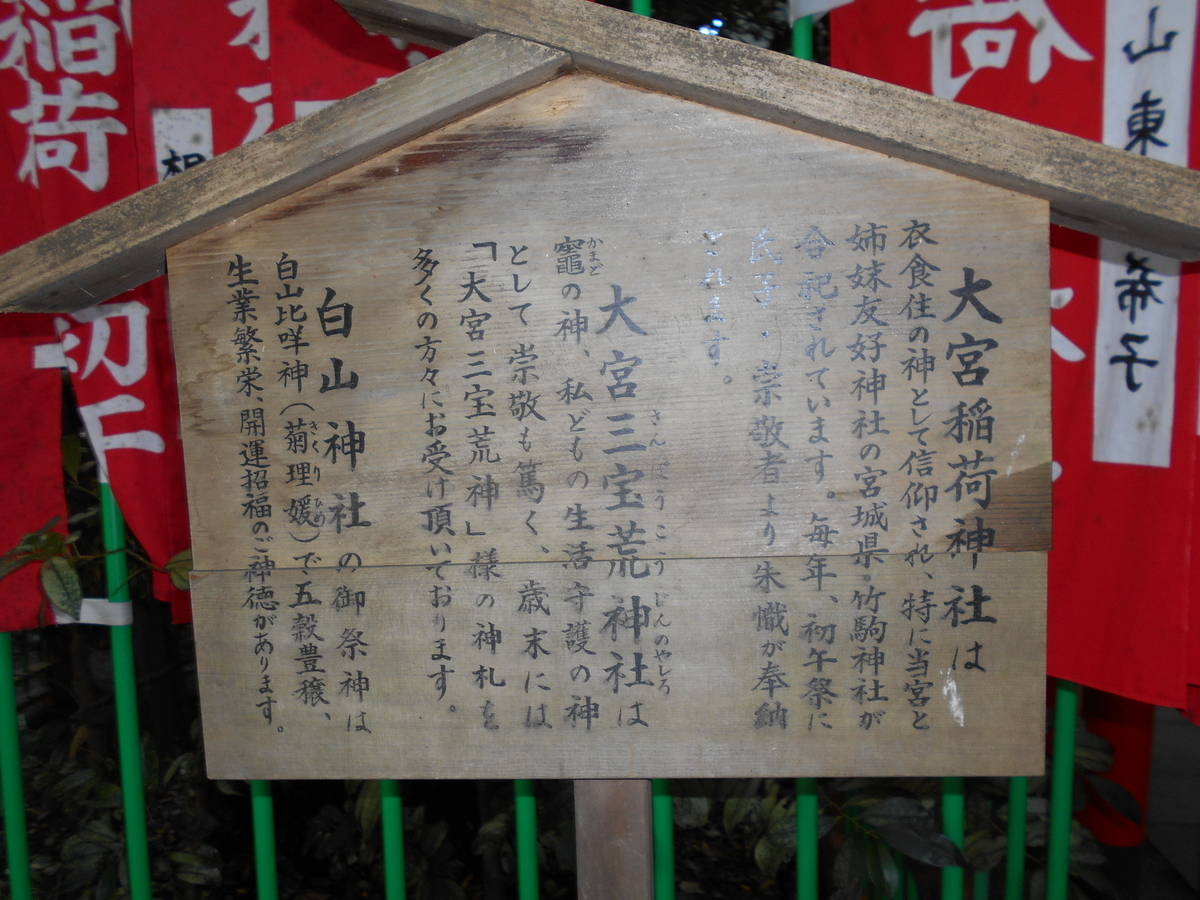 大宮稲荷神社は
衣食住の神として信仰され、特に当宮と
姉妹友好神社の宮城県・竹駒神社が
合祀されています。毎年、初午祭に
氏子・崇敬者より朱幟が奉納
されます。
大宮三宝荒神社は
さんぽうこうじんのやしろ
竈の神、私どもの生活守護の神
かまど
として崇敬も篤く、歳末には
「大宮三宝荒神」様の神札を
多くの方々にお受け頂いております。
白山神社の御祭神は
白山比咩神（菊理媛）で五穀豊穣、
きくりひめ
生業繁栄、開運招福のご神徳があります。
稲荷
初午
荷
山東
希子